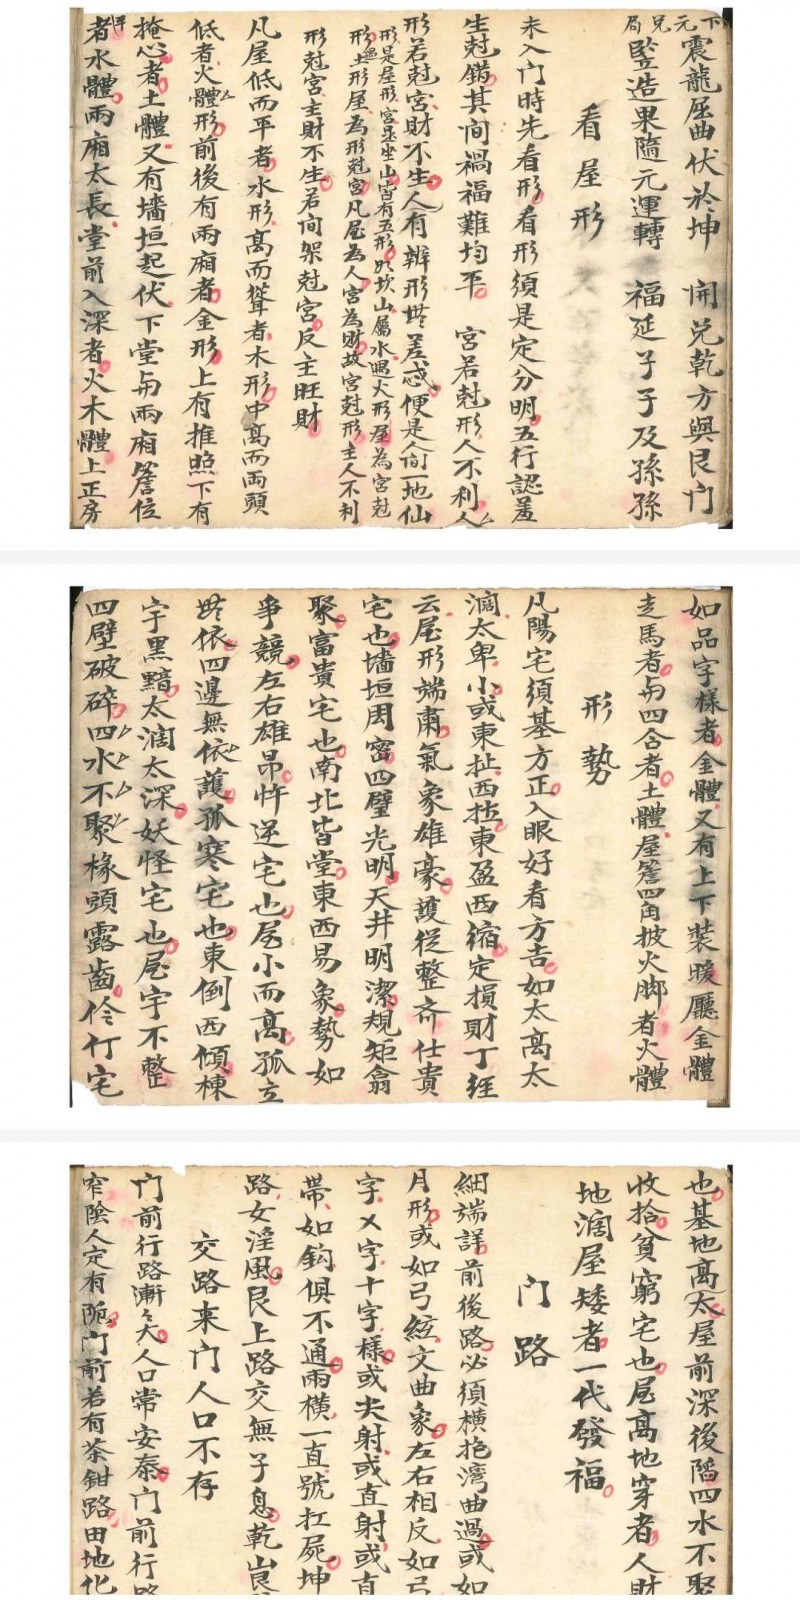 下元兌局
震龍屈曲伏於坤　開兌乾方與艮门
豎造果隨元運轉　福延子子及孫孫
看屋形
未入门時先看形看形須是定分明五行認羞
生尅錯其间禍福難均平　宮若尅形人不利人
形若尅宮財不生人有辨形無差惑便是人间一地仙
形是屋形宮是坐山皆有五形如坎山屬水遇火形屋為宮尅
形土形屋為形尅宮凡屋為人宮為財故宮尅形主人不利
形尅宮主財不生若间架尅宮反主旺財
凡屋低而平者水形高而聳者木形中高而両頭
低者火體形前後有兩廂者金形上有推照下有
掩心者土體又有墻垣起伏下堂与兩廂簷位
平者水體兩廂太長堂前入深者火木體上正房
如品字樣者金體又有上下裝暖廳金體
走馬者与四合者土體屋簷四角披火脚者火體
形勢
凡陽宅須基方正入眼好看方吉如太高太
濶太卑小或東扯西拉東盈西縮定損財丁經
云屋形端肅氣象雄豪護從整斉仕貴
宅也墻垣周密四壁光明天井明潔規矩翕
聚富貴宅也南北皆堂東西易象勢如
爭競左右雄昂忤逆宅也屋小而高孤立
無依四邊無依護孤寒宅也東倒西傾棟
宇黑黯太濶太深妖怪宅也屋宇不整
四壁破碎四水不聚椽頭露齒伶仃宅
也基地高太屋前深後陷四水不聚
收拾貧窮宅也屋高地穿者人財
地濶屋矮者一代發福
门路
細端詳前後路必須橫抱灣曲過或如
月形或如弓絃文曲象左右相反如弓
字乂字十字樣或尖射或直射或直
帶如鈎俱不通兩橫一直號扛屍坤
路女淫風艮上路交無子息乾艮
交路来门人口不存
门前行路漸々大人口常安泰门前行路
窄陰人定有阨门前若有茶鉗路田地化